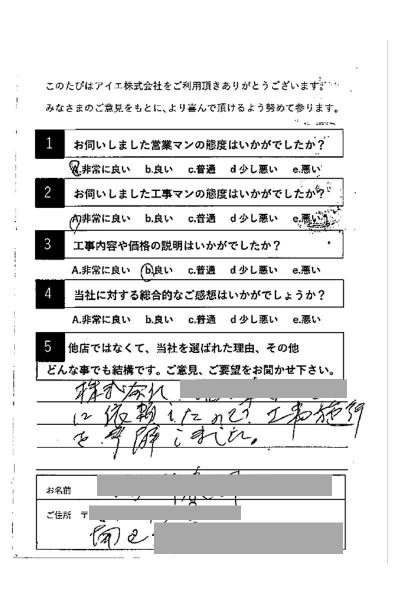 このたびはアイエ株式会社をご利用頂きありがとうございます。
みなさまのご意見をもとに、より喜んで頂けるよう努めて参ります。
1 お伺いしました営業マンの態度はいかがでしたか?
A.非常に良い b.良い c.普通 d 少し悪い e.悪い
2 お伺いしました工事マンの態度はいかがでしたか?
A.非常に良い b.良い c.普通 d 少し悪い e.悪い
3 工事内容や価格の説明はいかがでしたか?
A.非常に良い b.良い c.普通 d 少し悪い e.悪い
4 当社に対する総合的なご感想はいかがでしょうか?
A.非常に良い b.良い c.普通 d 少し悪い e.悪い
5 他店ではなくて、当社を選ばれた理由、その他
どんな事でも結構です。ご意見、ご要望をお聞かせ下さい。
株式会社
に依頼したので 工事施行
を しました。
お名前
ご住所 〒